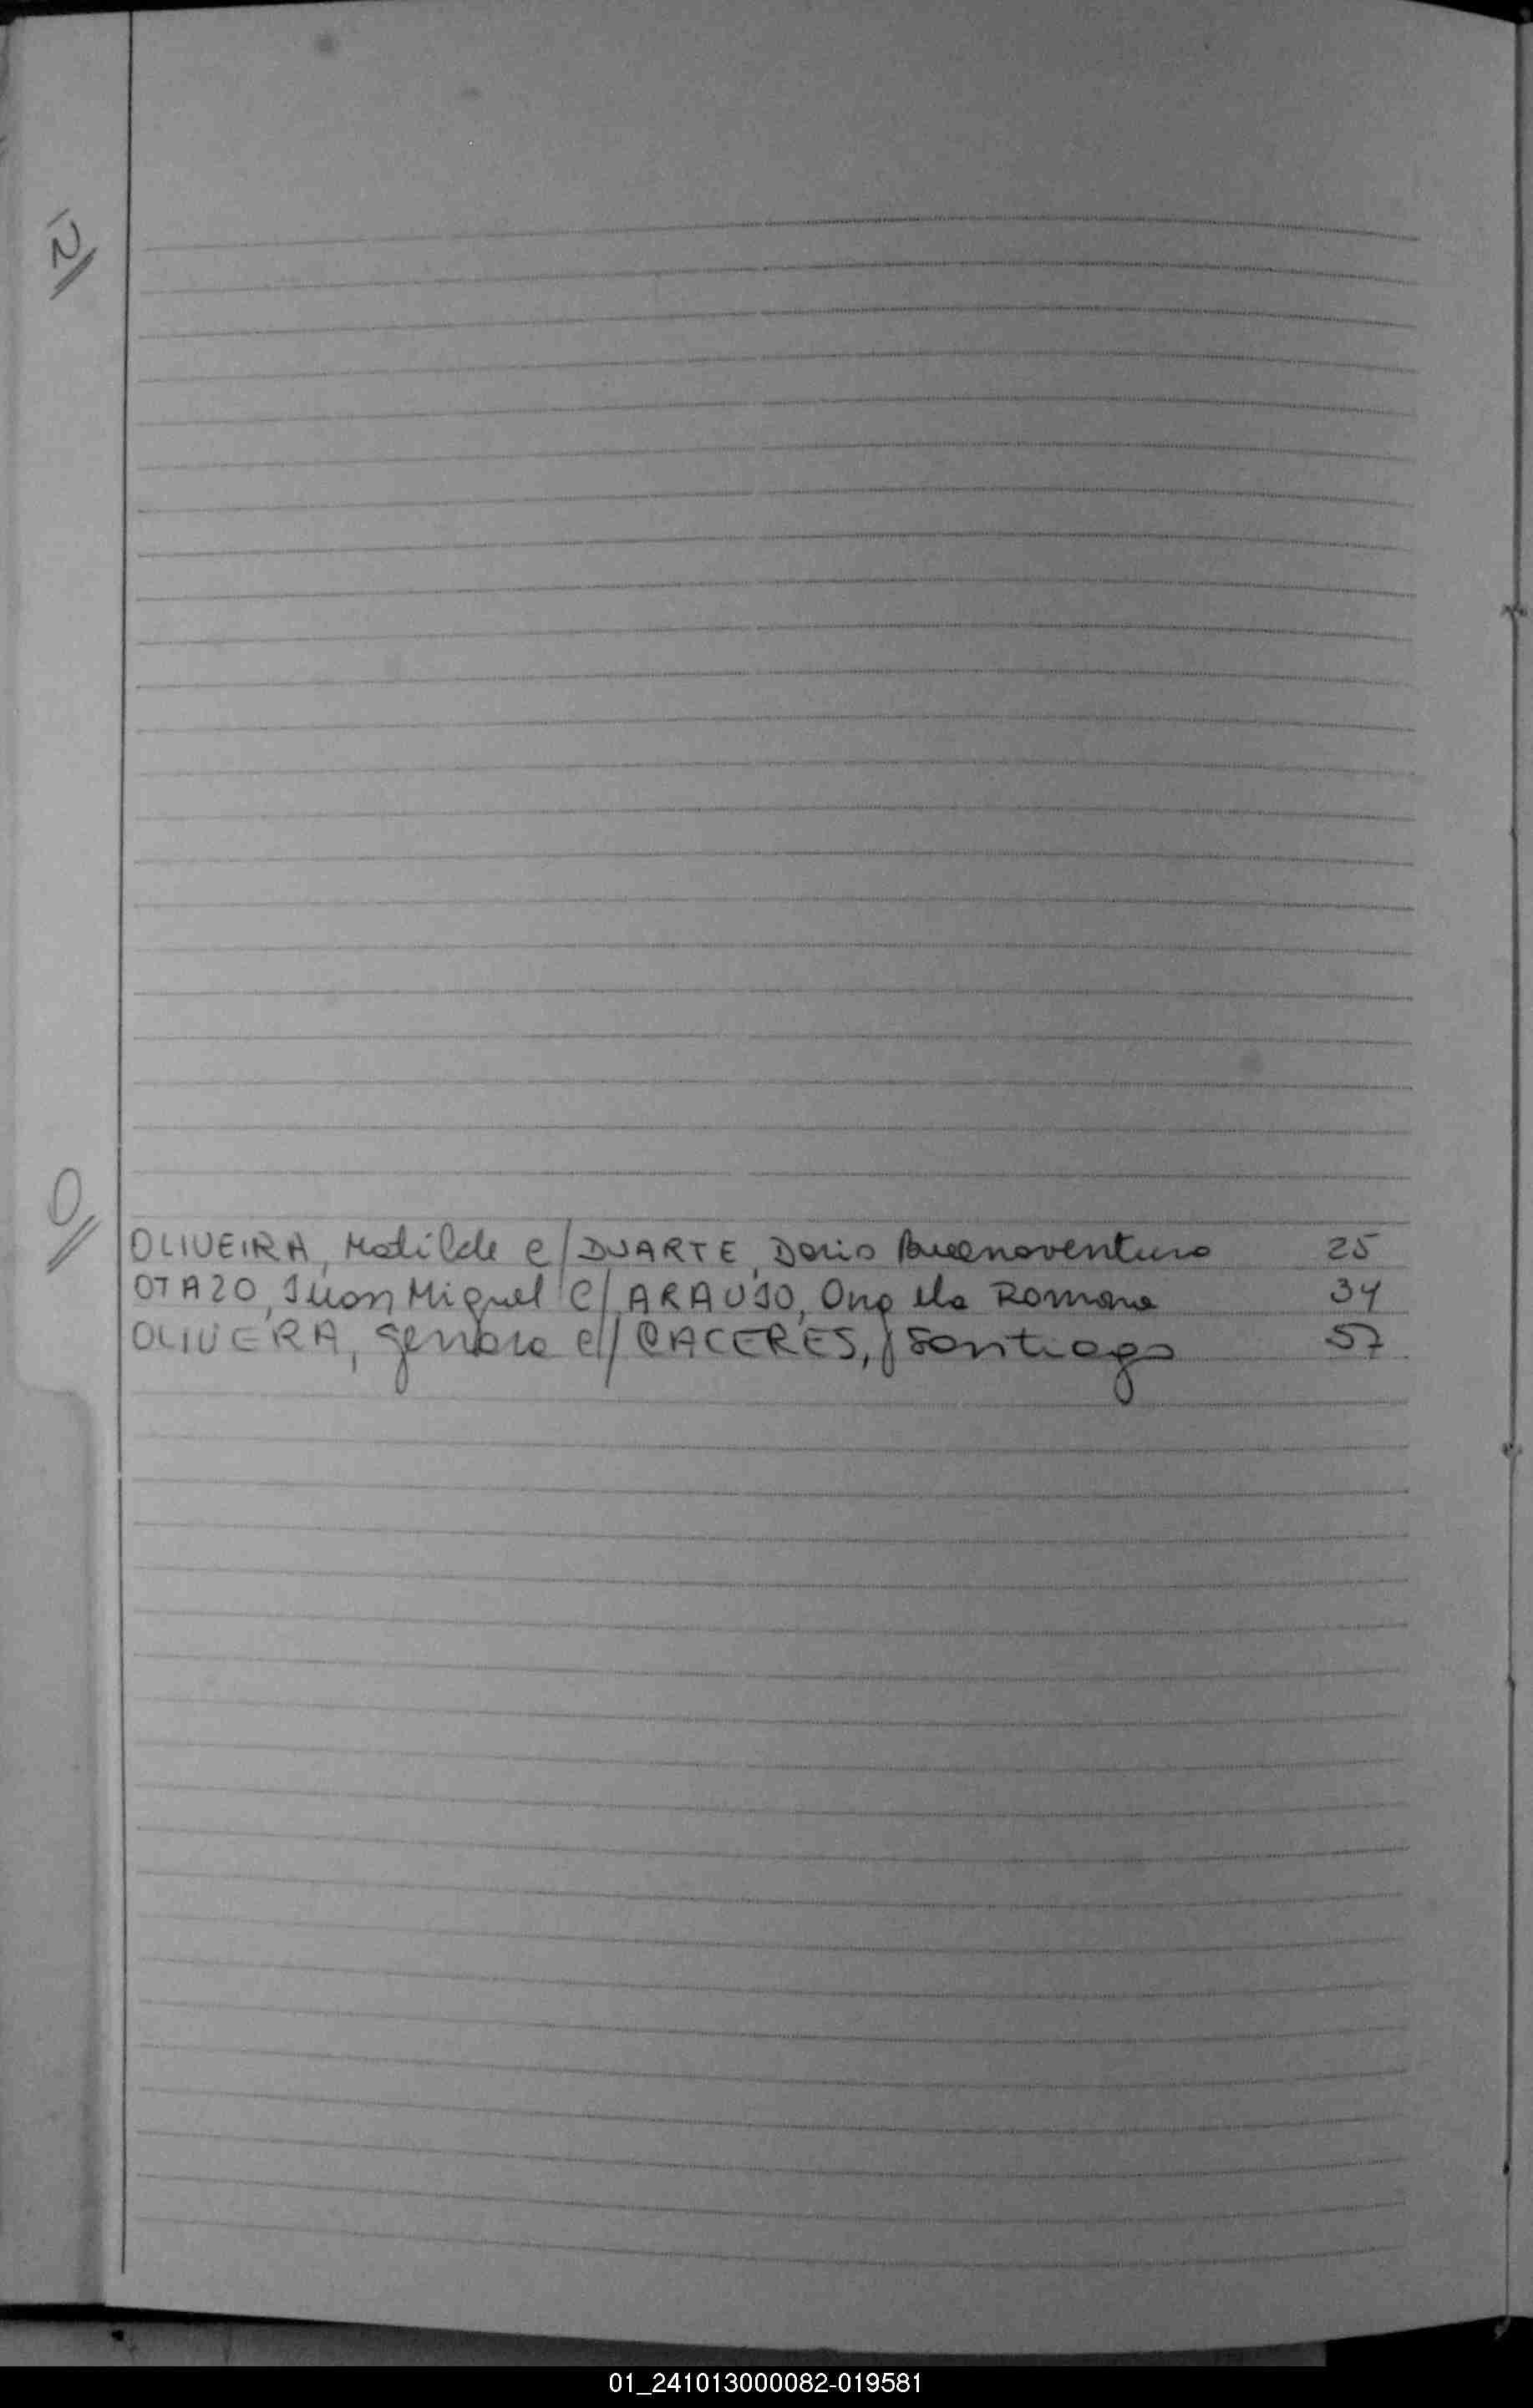 Ñ
O
OLIVEIRA, Matilde c/ DUARTE, Dario Buenaventura 25
OTAZO, Juan Miguel c/ ARAUJO, Angela Romana 34
OLIVERA, Genara c/ CACERES, Santiago 57
01_241013000082-019581